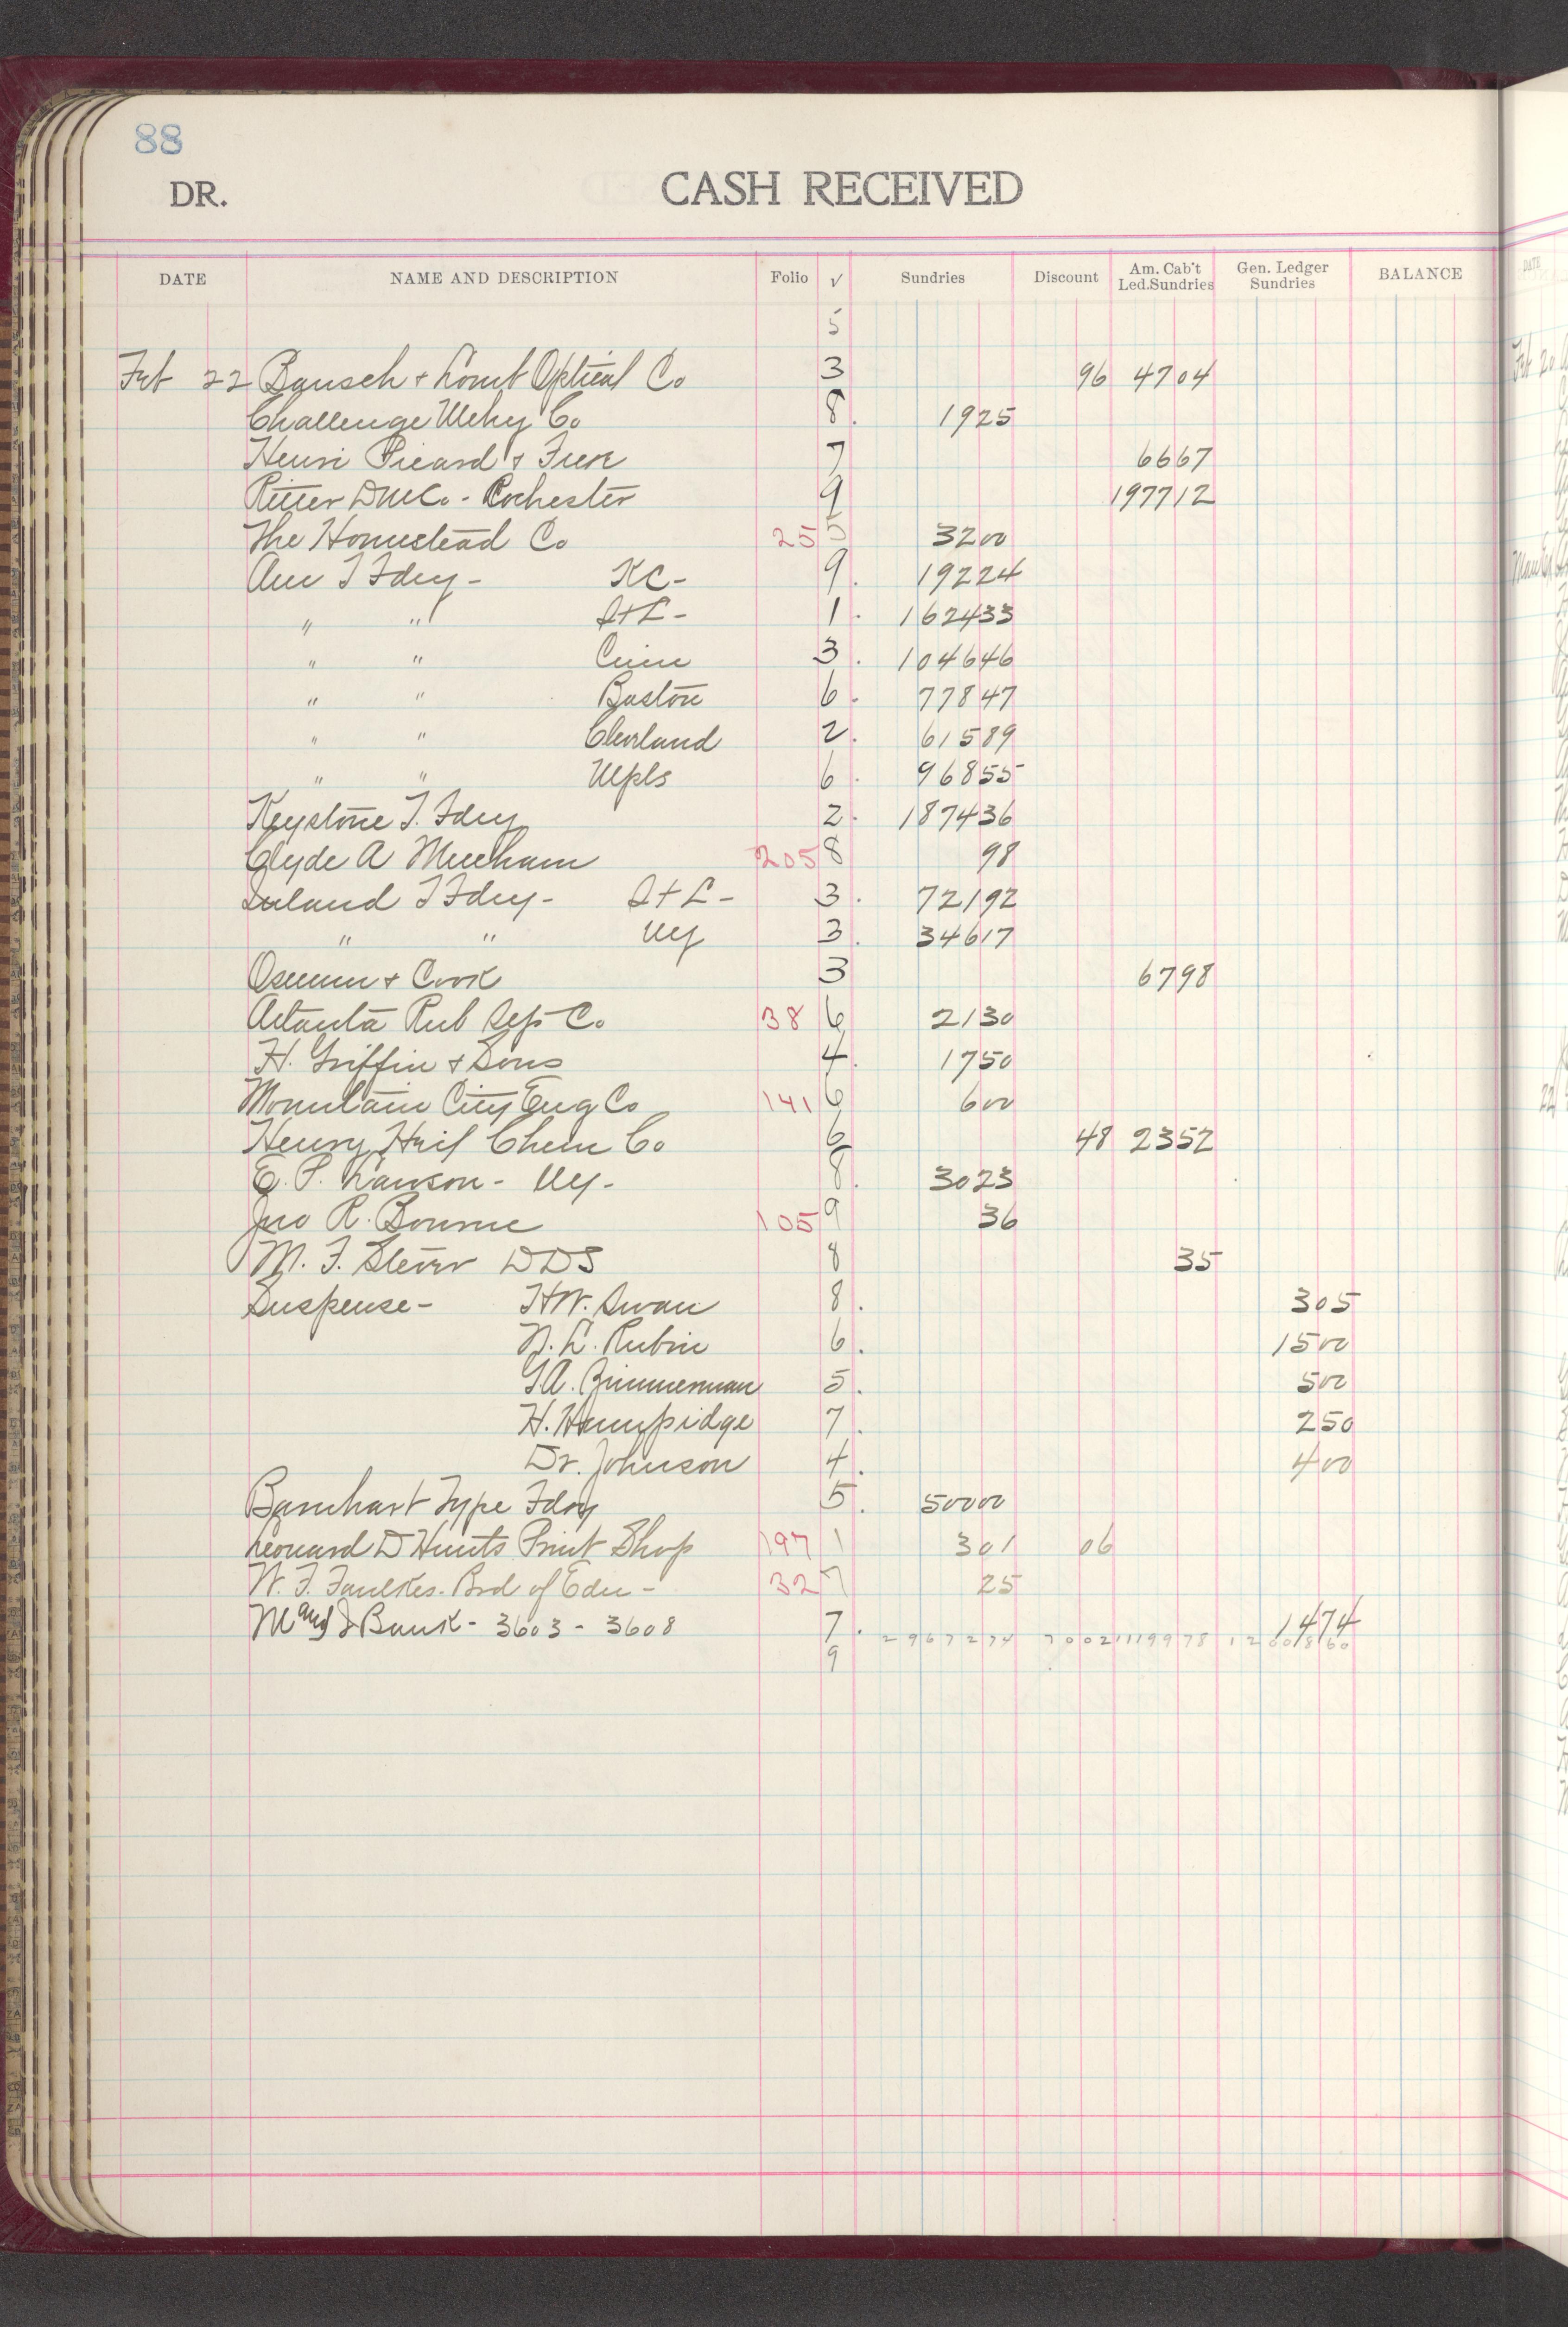 88
DR. CASH RECEIVED
DATE NAME AND DESCRIPTION Folio √ Sundries Discount Am. Cab't Led.Sundries Gen. Ledger Sundries BALANCE
5
Feb 22 Bausch + Lomb Optical Co 3 96 4704
Challenge Mchy Co 8. 1925
Henri Picard & Frere 7 6667
Ritter DMCo - Rochester 9 197712
The Homestead Co 25 5 3200
Am T Fdry - KC - 9. 19224
" " StL - 1. 162433
" " Cinn 3. 104646
" " Boston 6. 77847
" " Cleveland 2. 61589
" " Mpls 6. 96855
Keystone T. Fdry 2. 187436
Clyde A Meecham 205 8 98
Inland T Fdry - St L - 3. 72192
" " NY 3. 34617
Osmun + Cook 3 6798
Atlanta Rub Sep Co 38 6 2130
H. Griffin & Sons 4. 1750
Mountain City Eng Co 141 6 600
Henry Heil Chem Co 6 48 2352
E. P. Lawson - NY - 8. 3023
Jno R. Bourne 105 9 36
M. F. DDS 8 35
Suspense - HW. Swan 8. 305
N. L. Rubin 6. 1500
Zimmerman 5. 500
H. Humpidge 7. 250
Dr. Johnson 4. 400
Barnhart Type Fdry 5. 50000
Leonard D Hunts Print Shop 197 1 301 06
W. F. Faulkes. Brd of Edu - 32 7 25
Bank - 3603 - 3608 7. 1474
2967274 7002 1119978 1200860
9